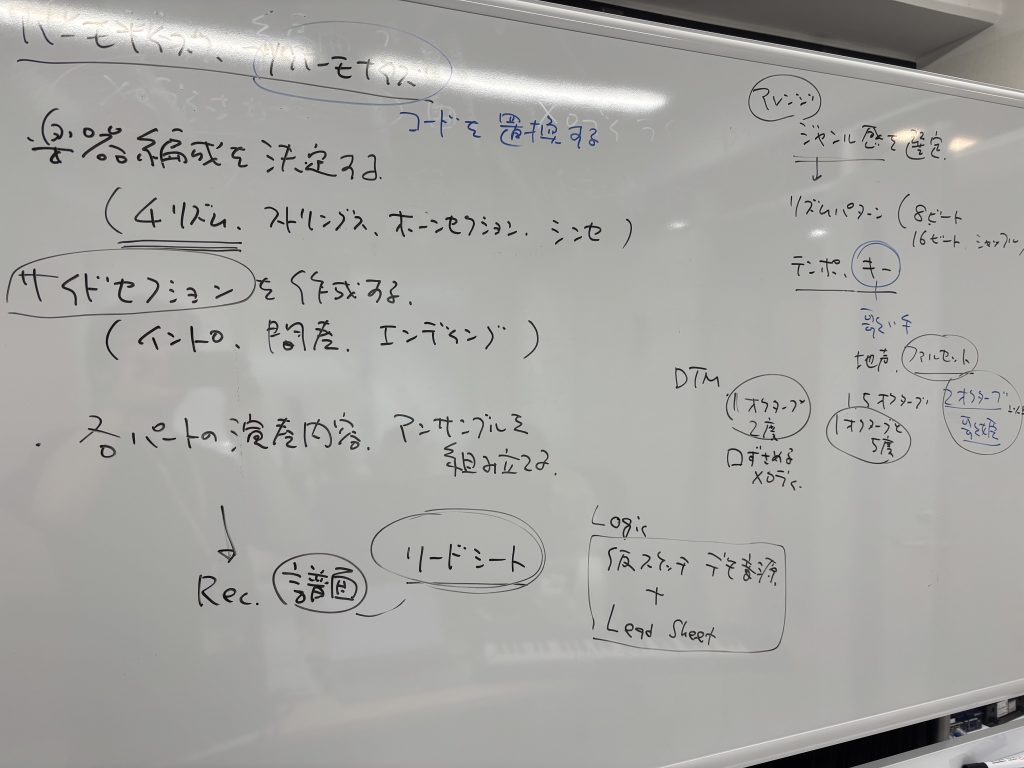 ハーモナイズ、リハーモナイズ
コードを置換する
・楽器編成を決定する
(4リズム、ストリングス、ホーンセクション、シンセ)
サイドセクションを作成する。
(イントロ、間奏、エンディング)
・各パートの演奏内容、アンサンブルを
組み立てる。
↓
Rec. 譜面
リードシート
アレンジ
ジャンル感を選定
↓
リズムパターン(8ビート
16ビート、シャッフル
テンポ、キー
歌い手
地声、ファルセット
DTM
1オクターブ
2度
口ずさめる
メロディ
1.5オクターブ
1オクターブと
5度
2オクターブ
Logic
仮スケッチ デモ音源
+
Lead Sheet